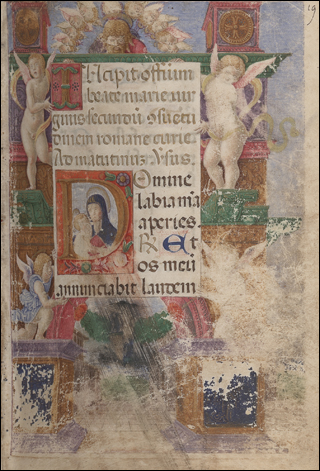 19
Incipit offitium
beate marie vir
ginis secundū ɔsuetu
dinem romane curie
Ad matutinuz Vsus.
Domine
labia mea
aperies.
R Et
os meū
annunciabit laudem